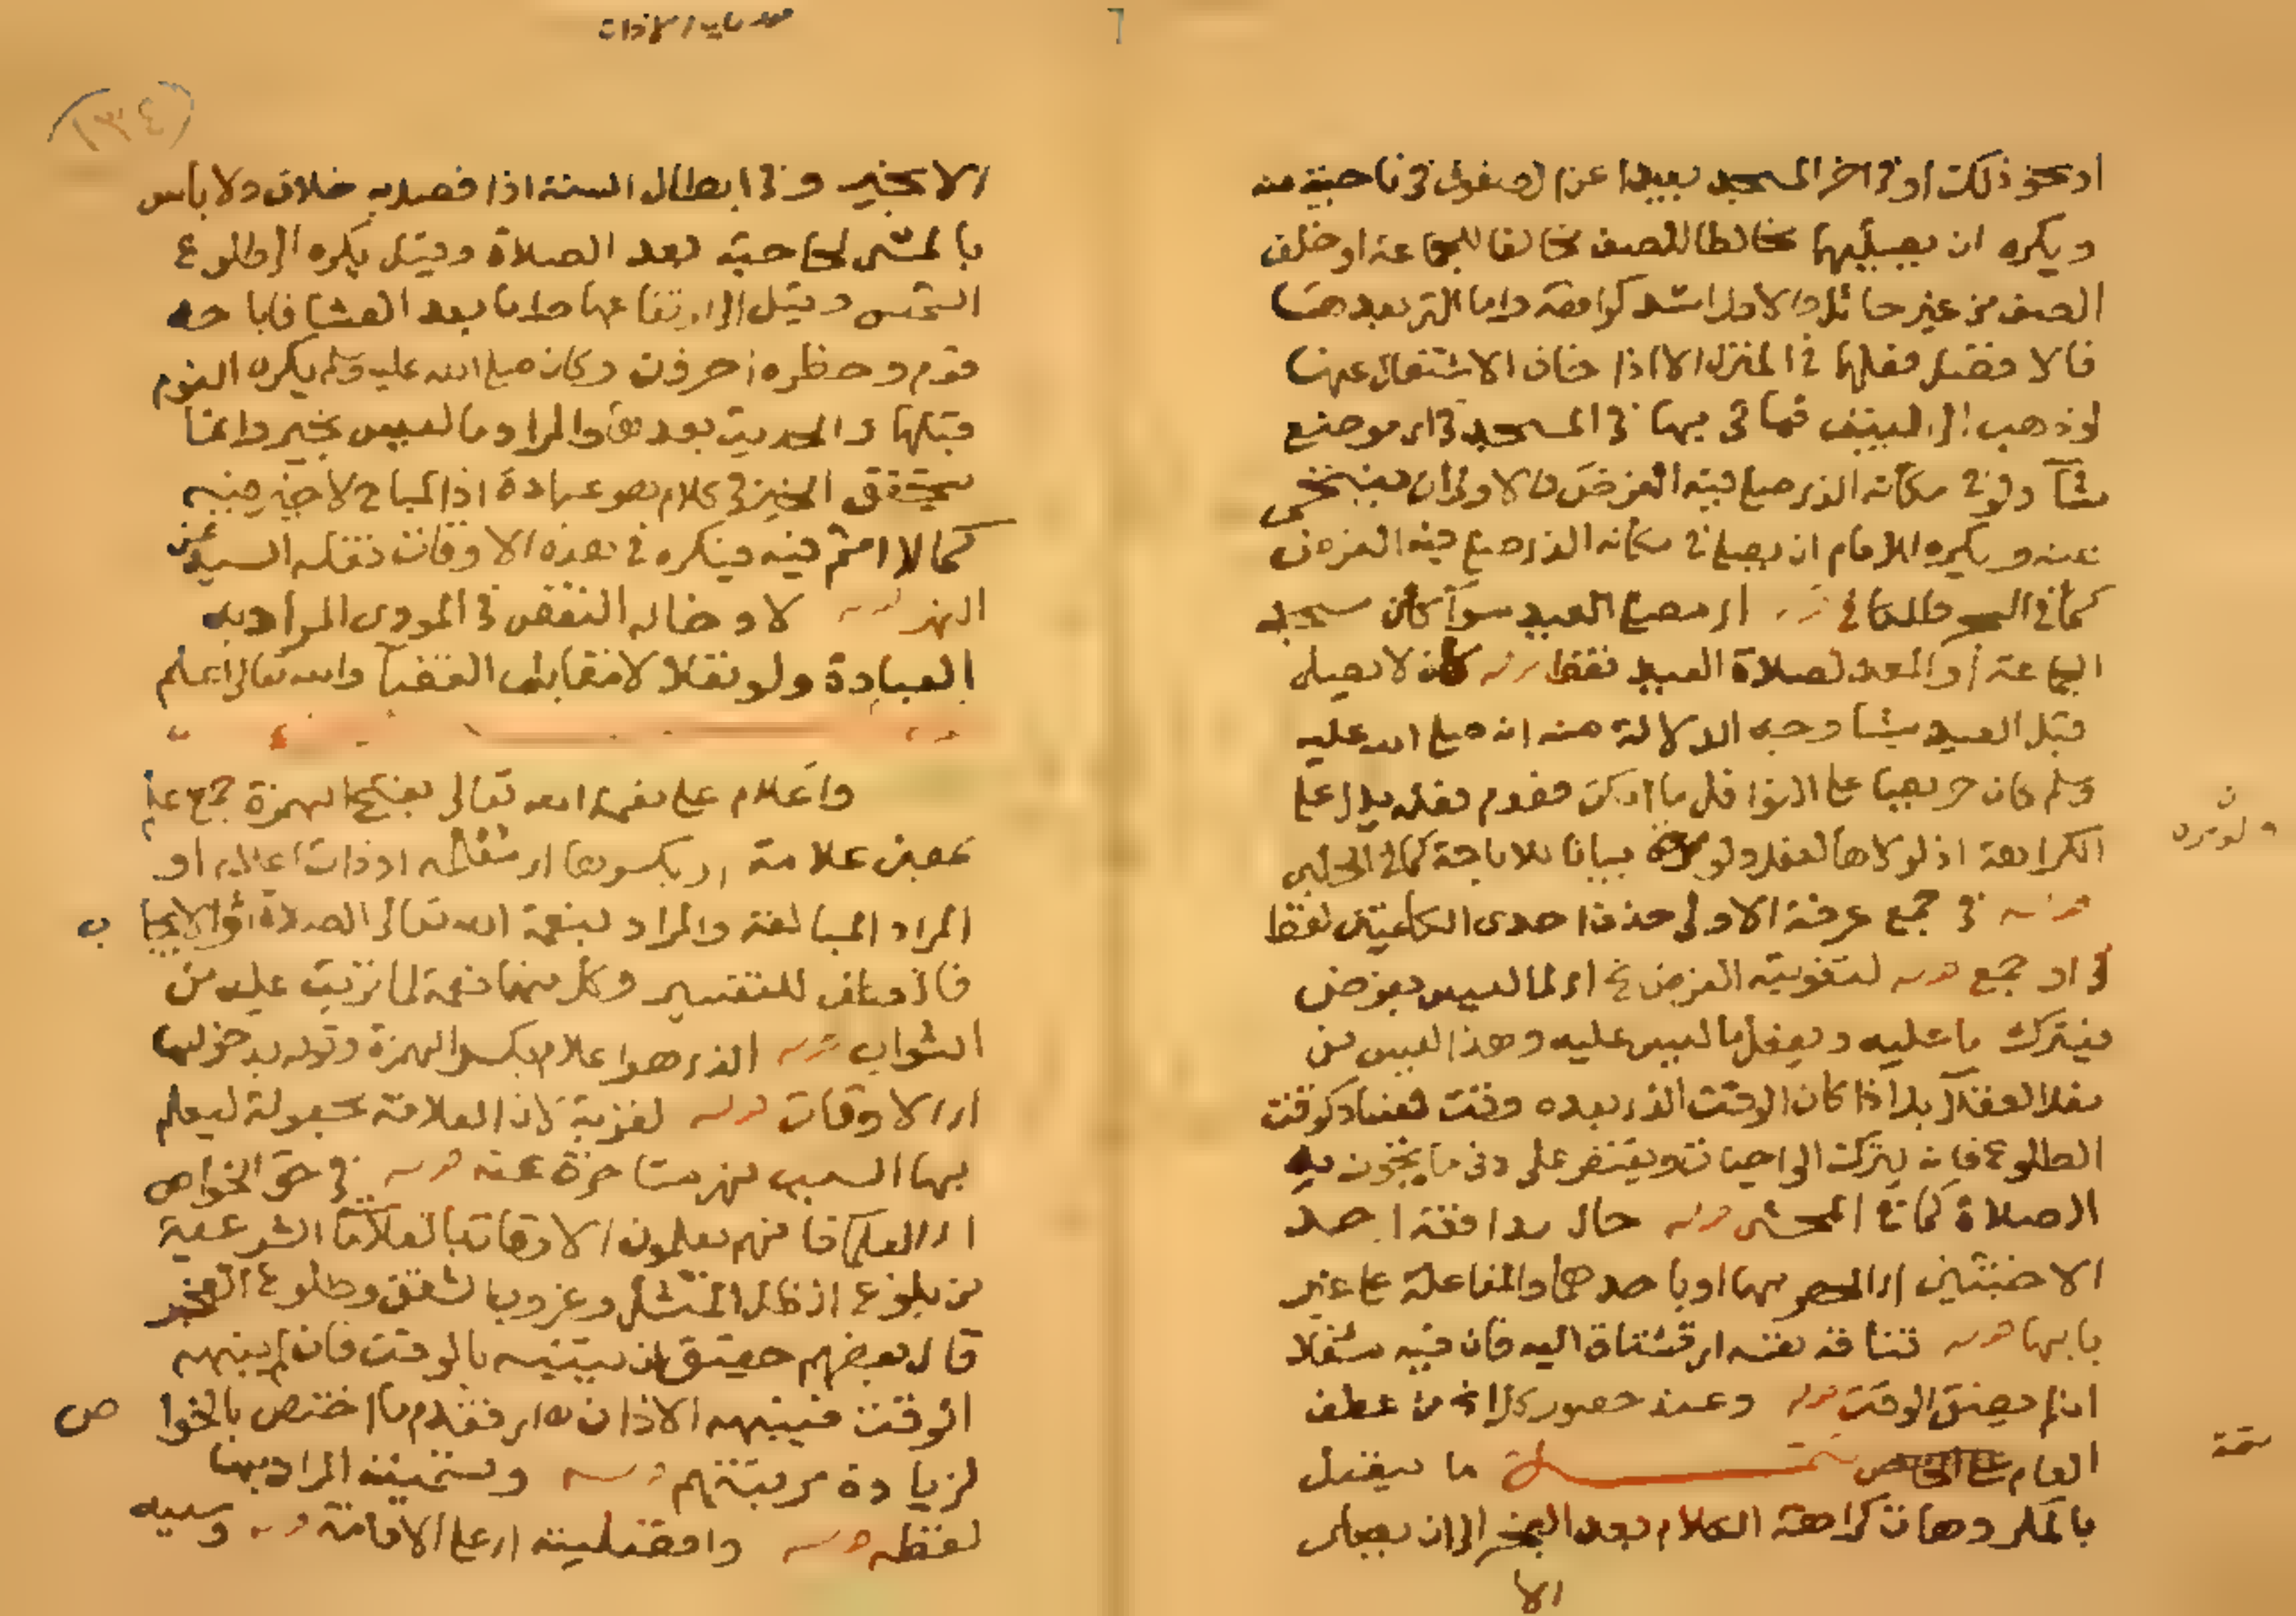 او نحو ذلك او في اخر المسجد بعيدا عن الصفوف في ناحية منه
ويكره ان يصليها مخالطا للصف مخالفا للجماعة او خلف
الصف من غير حائل والاول اشد كراهة واما التي بعدها
فالافضل فعلها في المنزل الا اذا خاف الاشتغال عنها
لو ذهب الى البيت فياتي بها في المسجد في اي موضع
شآ ولو في مكانه الذي صلى فيه الفرض والاولى ان يتنحى
عنه ويكره للامام ان يصلي في مكانه الذي صلى فيه الفرض
كما في اي مصلى العيد سوآ كان مسجد
الجماعة او المعد لصلاة العيد فقط قوله كان لا يصلي
قبل العيد شيئا وجه الدلالة منه انه صلى الله عليه
وسلم كان حريصا على النوافل ما امكن فعدم فعله يدل على
الكراهة اذ لولاها لفعل ولو مرة بيانا للاباحة كما في الحلبي
قوله في جمع عرفة الاولى حذف احدى الكلمتين لفظا
في او جمع قوله لتفويته الفرض اي لما ليس بفرض
فيترك ما عليه ويفعل ما ليس عليه وهذا ليس من
فعل العقلآ بل اذا كان الوقت الذي بعده وقت كوقت
الطلوع فانه يترك الواجبات ويقتصر على ادنى ما تجوز به
الصلاة كما في المحشي قوله حال مدافعة احد
الاخبثين اي بهما او باحدهما والمفاعلة على غير
بابها قوله تتتاقه نفسه اي تشتاق اليه فان فيه شغلا
ان لم يضق الوقت قوله وعند حضور كل من عطف
العام تتمة ما يتصل
بالمكروهات كراهة الكلام بعد الفجر الى ان يصلي
الا
ولو مرة
تتمة
(١٣٤)
الا بخير وفي ابطال السنة اذا فصل به خلاف ولا باس
بالمشي لحاجته بعد الصلاة وقيل يكره الى طلوع
الشمس وقيل الى ارتفاعها واما بعد العشا فاباحه
قوم وحظره اخرون وكان صلى الله عليه وسلم يكره النوم
قبلها والحديث بعدها والمراد ما ليس بخير وانما
يتحقق الخير في كلام هو عبادة اذ المباح لا خير فيه
كما لا اثم فيه فيكره في هذه الاوقات نقله السيد عن
النهر قوله لادخاله النقص في المودى المراد به
العبادة ولو نفلا لا مقابل القضآ والله تعالى اعلم
واعلام على نعم الله تعالى بفتح الهمزة جمع علم
بمعنى علامة او بكسرها او ذات اعلام او
المراد المبالغة والمراد بنعمة الله تعالى الصلاة او الايجا
ب
وكل منها نعمة لما ترتب عليه من
الثواب قوله الذي هو اعلام بكسر الهمزة وقوله بدخولها
اي الاوقات قوله لغربة كان العلامة مجعولة ليعلم
بها السبب فهي متاخرة عنه قوله في حق الخواص
اي العلما فانهم يعلمون الاوقات بالعلامات الشرعية
من بلوغ الظل المثل وغروب الشفق وطلوع الفجر
قال بعضهم حقيق بالوقت فان لم ينبهه
الوقت فينبهه الاذان اي فقدم ما اختص بالخوا
ص
لزيادة مرتبتهم قوله وستعرفه المراد بها
لفظه قوله وافضليته اي على الاقامة قوله وسببه